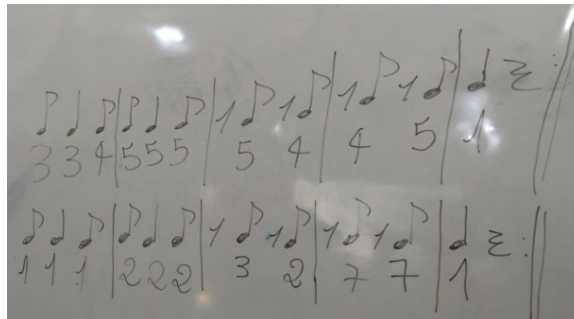 3 3 4 | 5 5 5 | 5 4 | 4 5 | 1 :||
1 1 1 | 2 2 2 | 3 2 | 7 7 | 1 :||